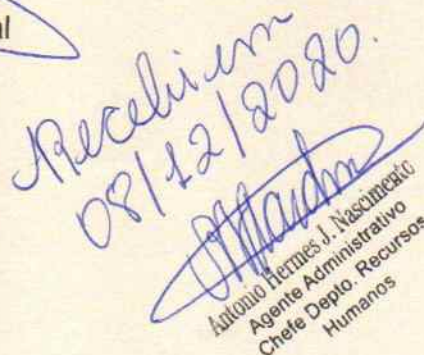 al
Recebi em
08/12/2020.
Antonio Hermes J. Nascimento
Agente Administrativo
Chefe Depto. Recursos
Humanos